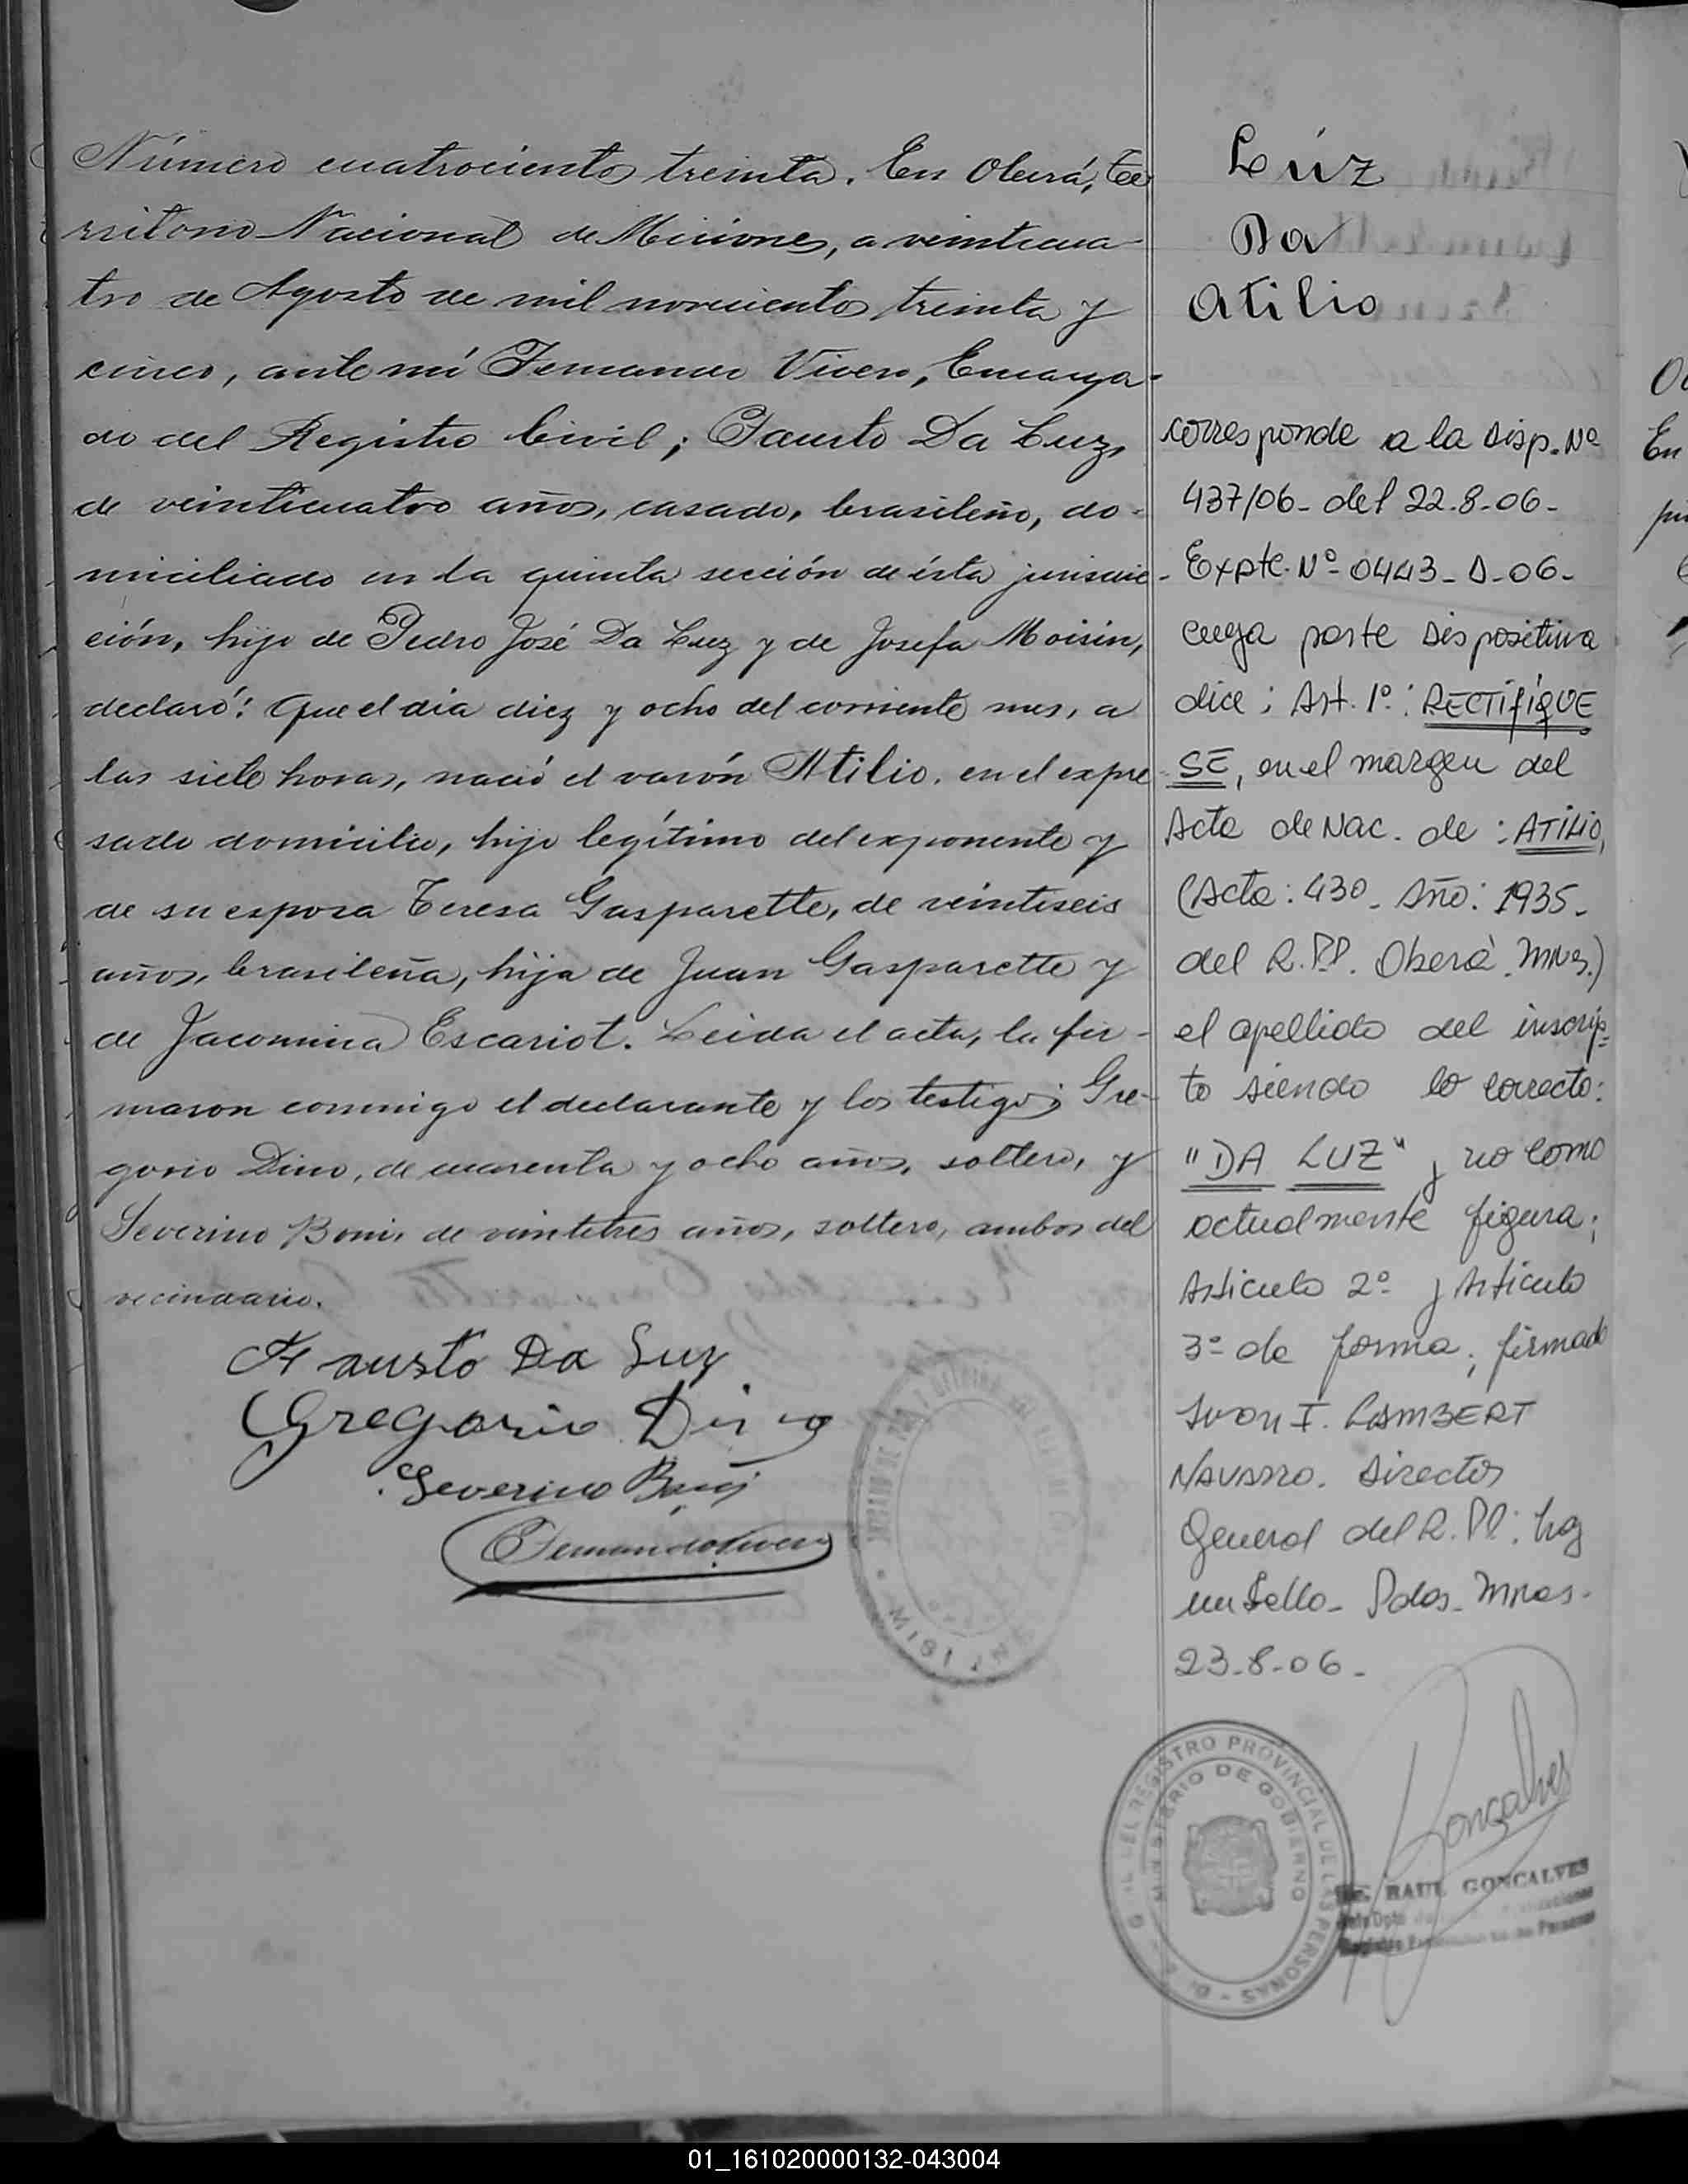 Número cuatrocientos treinta. En Oberá, Te
rritorio Nacional de Misiones, a veinticua-
tro de Agosto de mil novecientos treinta y
cinco, ante mí Fernando Vivero, Encarga-
do del Registro Civil; Fausto Da Luz,
de veinticuatro años, casado, brasileño, do-
miciliado en la quinta sección de ésta jurisdic-
ción, hijo de Pedro José Da Luz y de Josefa Moisin,
declaró: Que el día diez y ocho del corriente mes, a
las siete horas, nació el varón Atilio, en el expre
sado domicilio, hijo legítimo del exponente y
de su esposa Teresa Gasparette, de veintiseis
años, brasileña, hija de Juan Gasparette y
de Jacomina Escariot. Leida el acta, la fir-
maron conmigo el declarante y los testigos Gre-
gorio Dino, de cuarenta y ocho años, soltero, y
Severino Boni, de veintitres años, soltero, ambos del
vecindario.
Fausto Da Luz
Gregorio Dino
Severino Boni
Fernando Vivero
Luz
Da
Atilio
corresponde a la Disp. Nº
437/06- del 22-8-06-
Expte. Nº 0443-D-06-
cuya parte dispositiva
dice: Art. 1º: RECTIFÍQUE
SE, en el margen del
Acta de Nac. de: ATILIO,
(Acta: 430- Año: 1935-
del R.PP. Oberá. Mnes.)
el apellido del inscrip=
to siendo lo correcto:
"DA LUZ" y no como
actualmente figura;
Articulo 2º y Articulo
3º de forma; firmado
Ivon I. LAMBERT
Navarro. Director
General del R.PP. hay
un Sello- Pdas- Mnes-
23-8-06-
REGISTRO PROVINCIAL DE LAS PERSONAS
MINISTERIO DE GOBIERNO
Gonçalves
RAUL GONCALVES
01_161020000132-043004